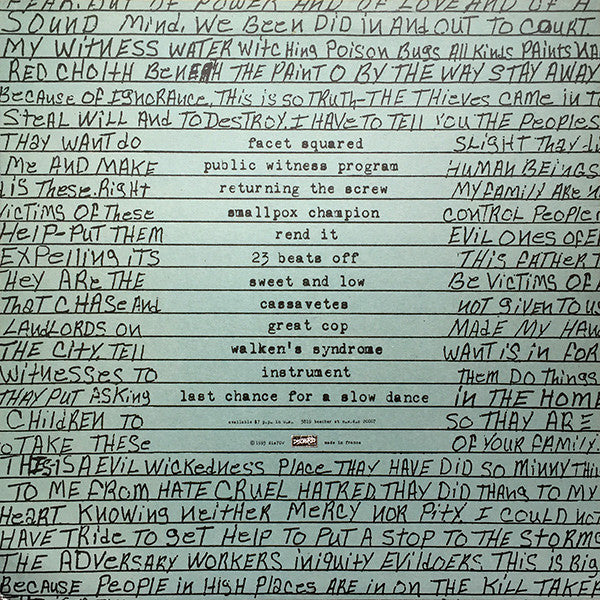 FEAR. BUT OF POWER AND OF LOVE AND OF A
SOUND MIND. WE BEEN DID IN AND OUT TO COURT
MY WITNESS WATER WITCHING POISON BUGS All KINDS PAINTS
RED CHOITH BENETH THE PAINT O BY THE WAY STAY AWAY
BECAUSE OF IGNORANCE, THIS IS SO TRUTH-THE THIEVES CAME IN T
STEAL WILL AND TO DESTROY. I HAVE TO TELL YOU THE PEOPLES
THAY WANT DO facet squared SLIGHT THAY
ME AND MAKE public witness program HUMAN BEINGS
IS THESE. RIGHT returning the screw MY FAMILY ARE
VICTIMS OF THESE smallpox champion CONTROL PEOPLE
HELP-PUT THEM rend it EVIL ONES OF
EXPELLING ITS 23 beats off THIS FATHER
HEY ARE THE sweet and low BE VICTIMS OF
THAT CHASE AND cassavetes NOT GIVEN TO
LANDLORDS ON great cop MADE MY
THE CITY. TELL walken's syndrome WANT IS IN FOR
WITNESSES TO instrument THEM DO THINGS
THAY PUT ASKING last chance for a slow dance IN THE HOME
CHILDREN TO available $7 p.p. in u.s. 3819 beecher st n.w. d.c 20007 SO THAY ARE
TO TAKE THESE © 1993 dis70v DISCHORD made in france OF YOUR FAMILY.
THIS IS A EVIL WICKEDNESS PLACE THAY HAVE DID SO MINNY
TO ME FROM HATE CRUEL HATRED THAY DID THANG TO MY
HEART KNOWING NEITHER MERCY NOR PITY I COULD NOT
HAVE TRIDE TO GET HELP TO PUT A STOP TO THE STORMS
THE ADVERSARY WORKERS INIQUITY EVILDOERS THIS IS
BECAUSE PEOPLE IN HIGH PLACES ARE IN ON THE KILL TAKE